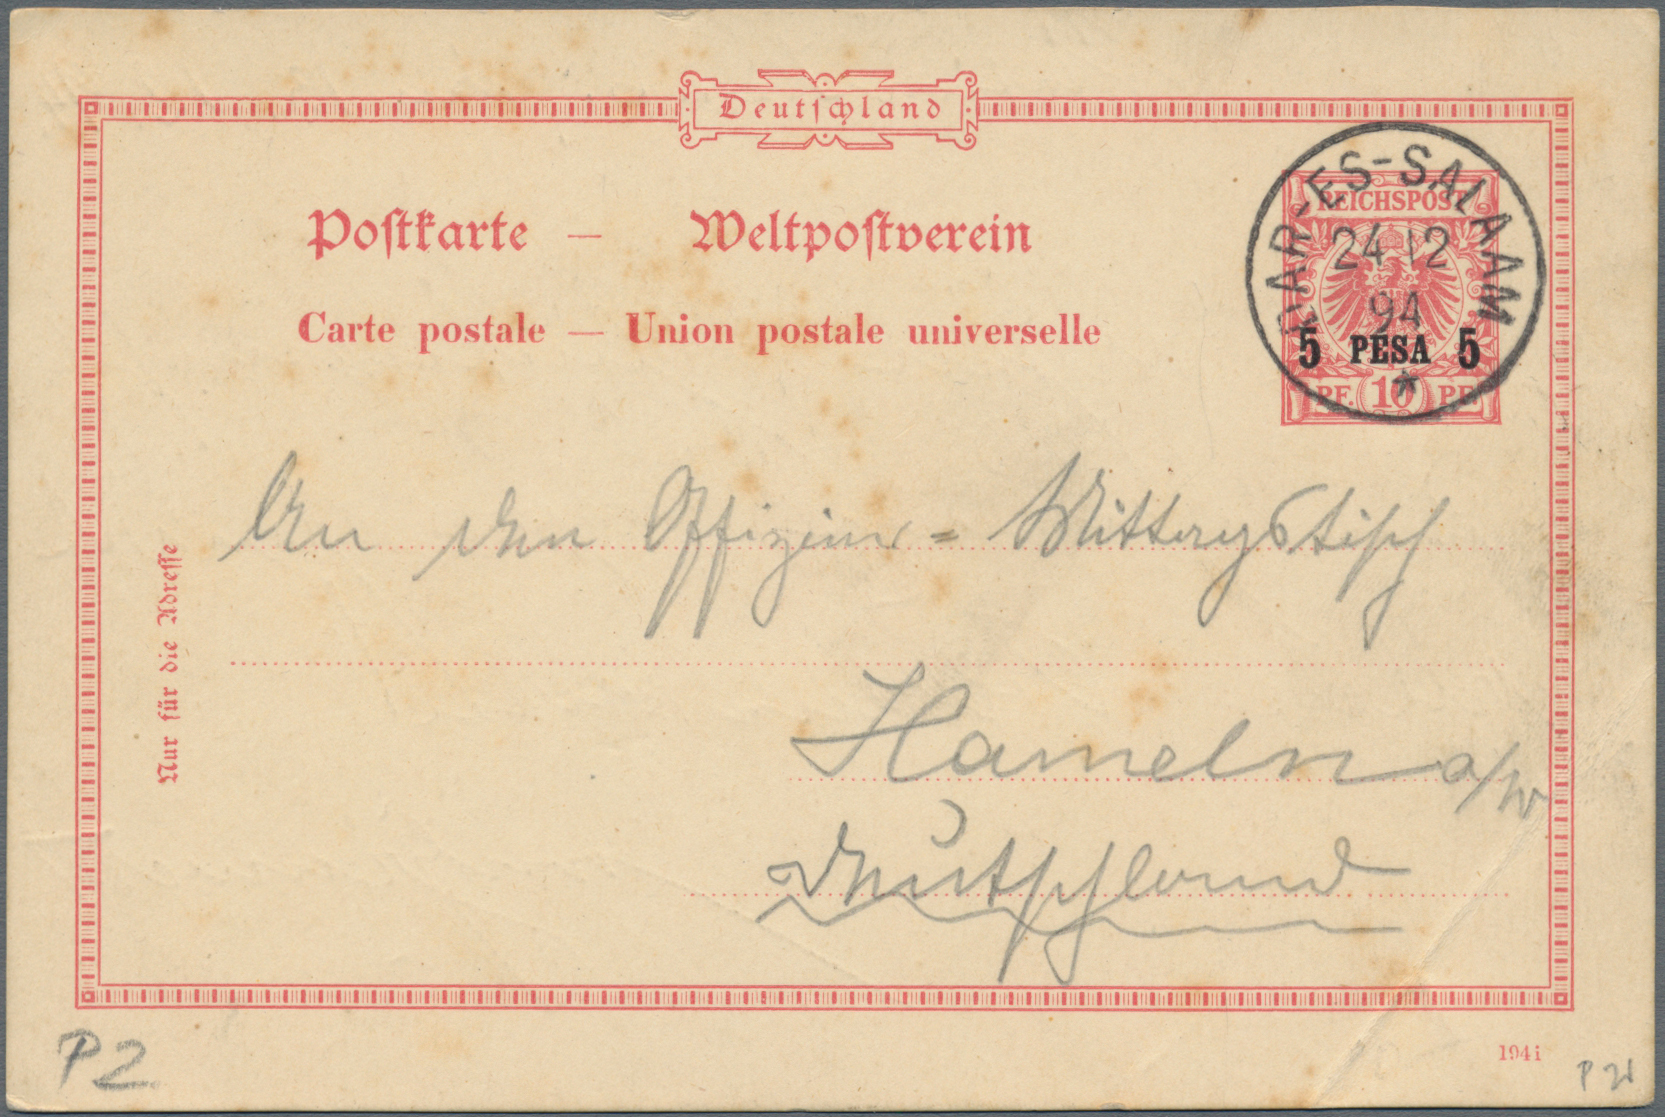 Deutschland
Postkarte — Weltpostverein
Carte postale — Union postale universelle
DAR-ES-SALAAM
24 12
94
REICHSPOST
5 PESA 5
PF. 10 PF.
An den Offizier = Mittagstisch
Hameln a/W
Deutschland
Nur für die Adresse
P2
194i